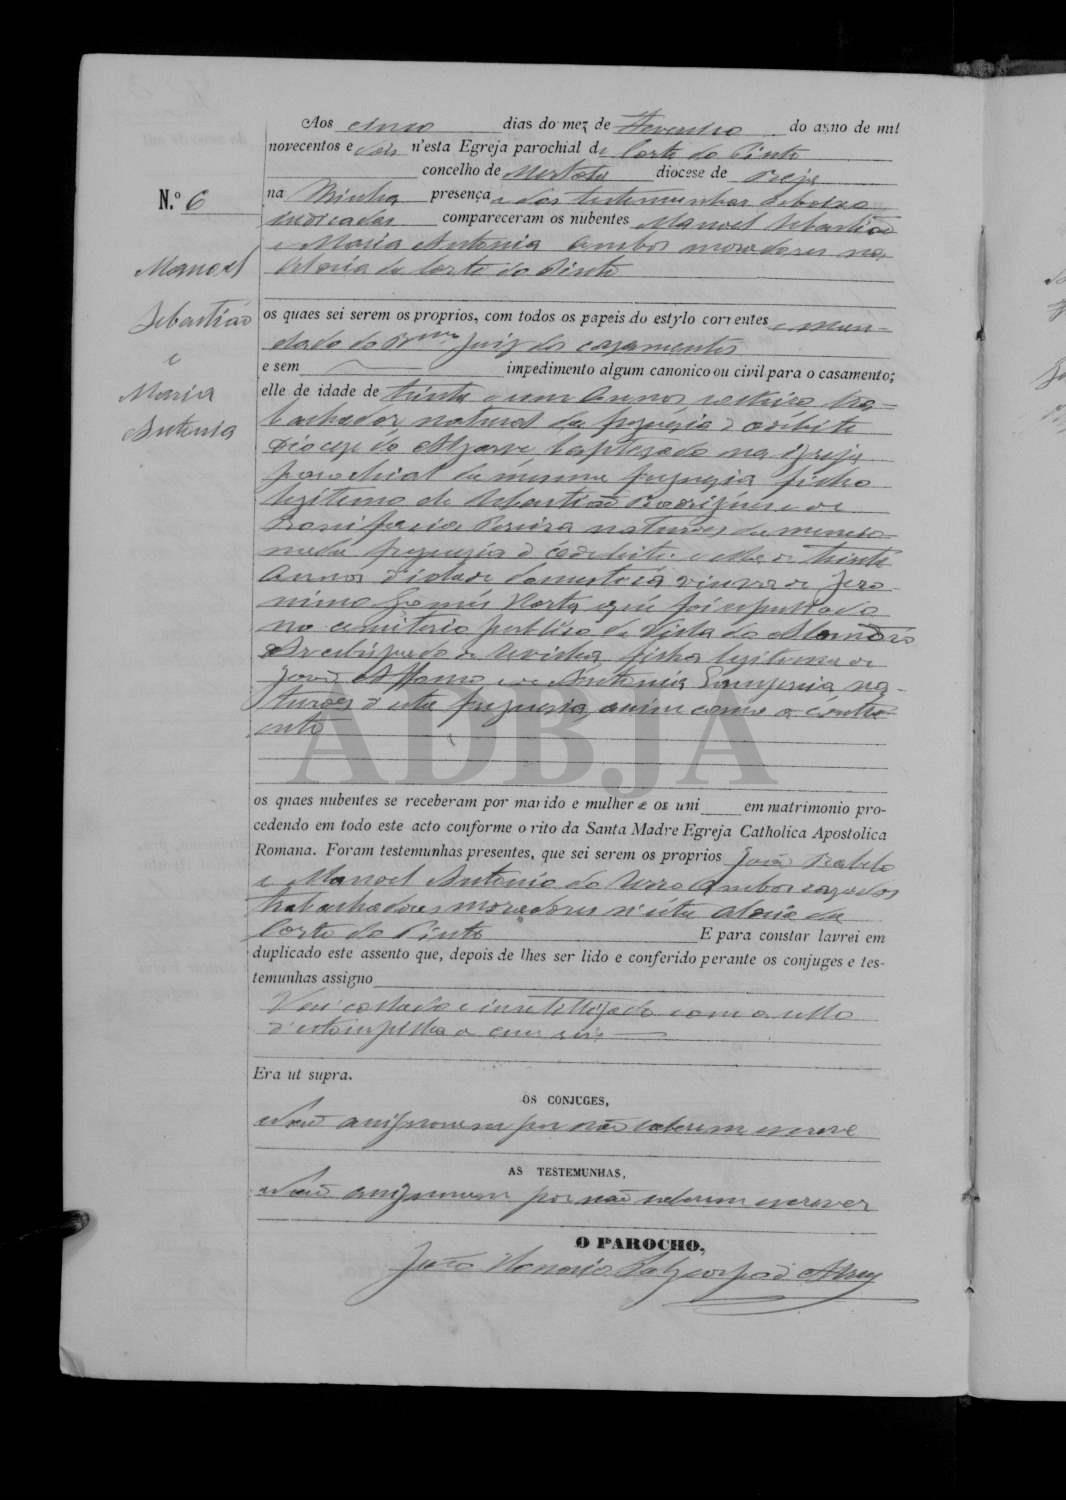 Aos cinco dias do mez de Fevereiro do anno de mil
novecentos e dois n'esta Egreja parochial de Corte do Pinto
concelho de Mertola diocese de Beja
N.º 6
na Minha presença e das testemunhas abaixo
indicadas compareceram os nubentes Manoel Sebastião
e Maria Antonia ambos moradores na
Aldeia da Corte do Pinto
Manoel
Sebastião
e
Maria
Antonia
os quaes sei serem os proprios, com todos os papeis do estylo correntes e man-
dado do Juiz dos casamentos
e sem impedimento algum canonico ou civil para o casamento;
elle de idade de trinta e um annos solteiro tra-
balhador natural da freguezia
Diocese do Algarve, baptizado na igreja
parochial da mesma freguezia filho
legitimo de Sebastião Rodrigues e de
Bonifacia Pereira naturaes da mencio-
nada freguezia e ella de trinta
annos d'idade domestica viuva de Jero-
nimo Gomes Horta que foi sepultado
no cemiterio publico da
filha legitima de
João Affonso e de Antonia na-
turaes d'esta freguezia, assim como a contra-
ente
ADBJA
os quaes nubentes se receberam por marido e mulher e os uni em matrimonio pro-
cedendo em todo este acto conforme o rito da Santa Madre Egreja Catholica Apostolica
Romana. Foram testemunhas presentes, que sei serem os proprios João Rabelo
e Manoel Antonio do ambos casados
trabalhadores moradores n'esta aldeia da
Corte do Pinto E para constar lavrei em
duplicado este assento que, depois de lhes ser lido e conferido perante os conjuges e tes-
temunhas assigno
Vai collado e inutilizado com o sello
d'estampilha de cem reis
Era ut supra.
OS CONJUGES,
Não assignaram por não saberem escrever
AS TESTEMUNHAS,
Não assignaram por não saberem escrever
O PAROCHO,
João